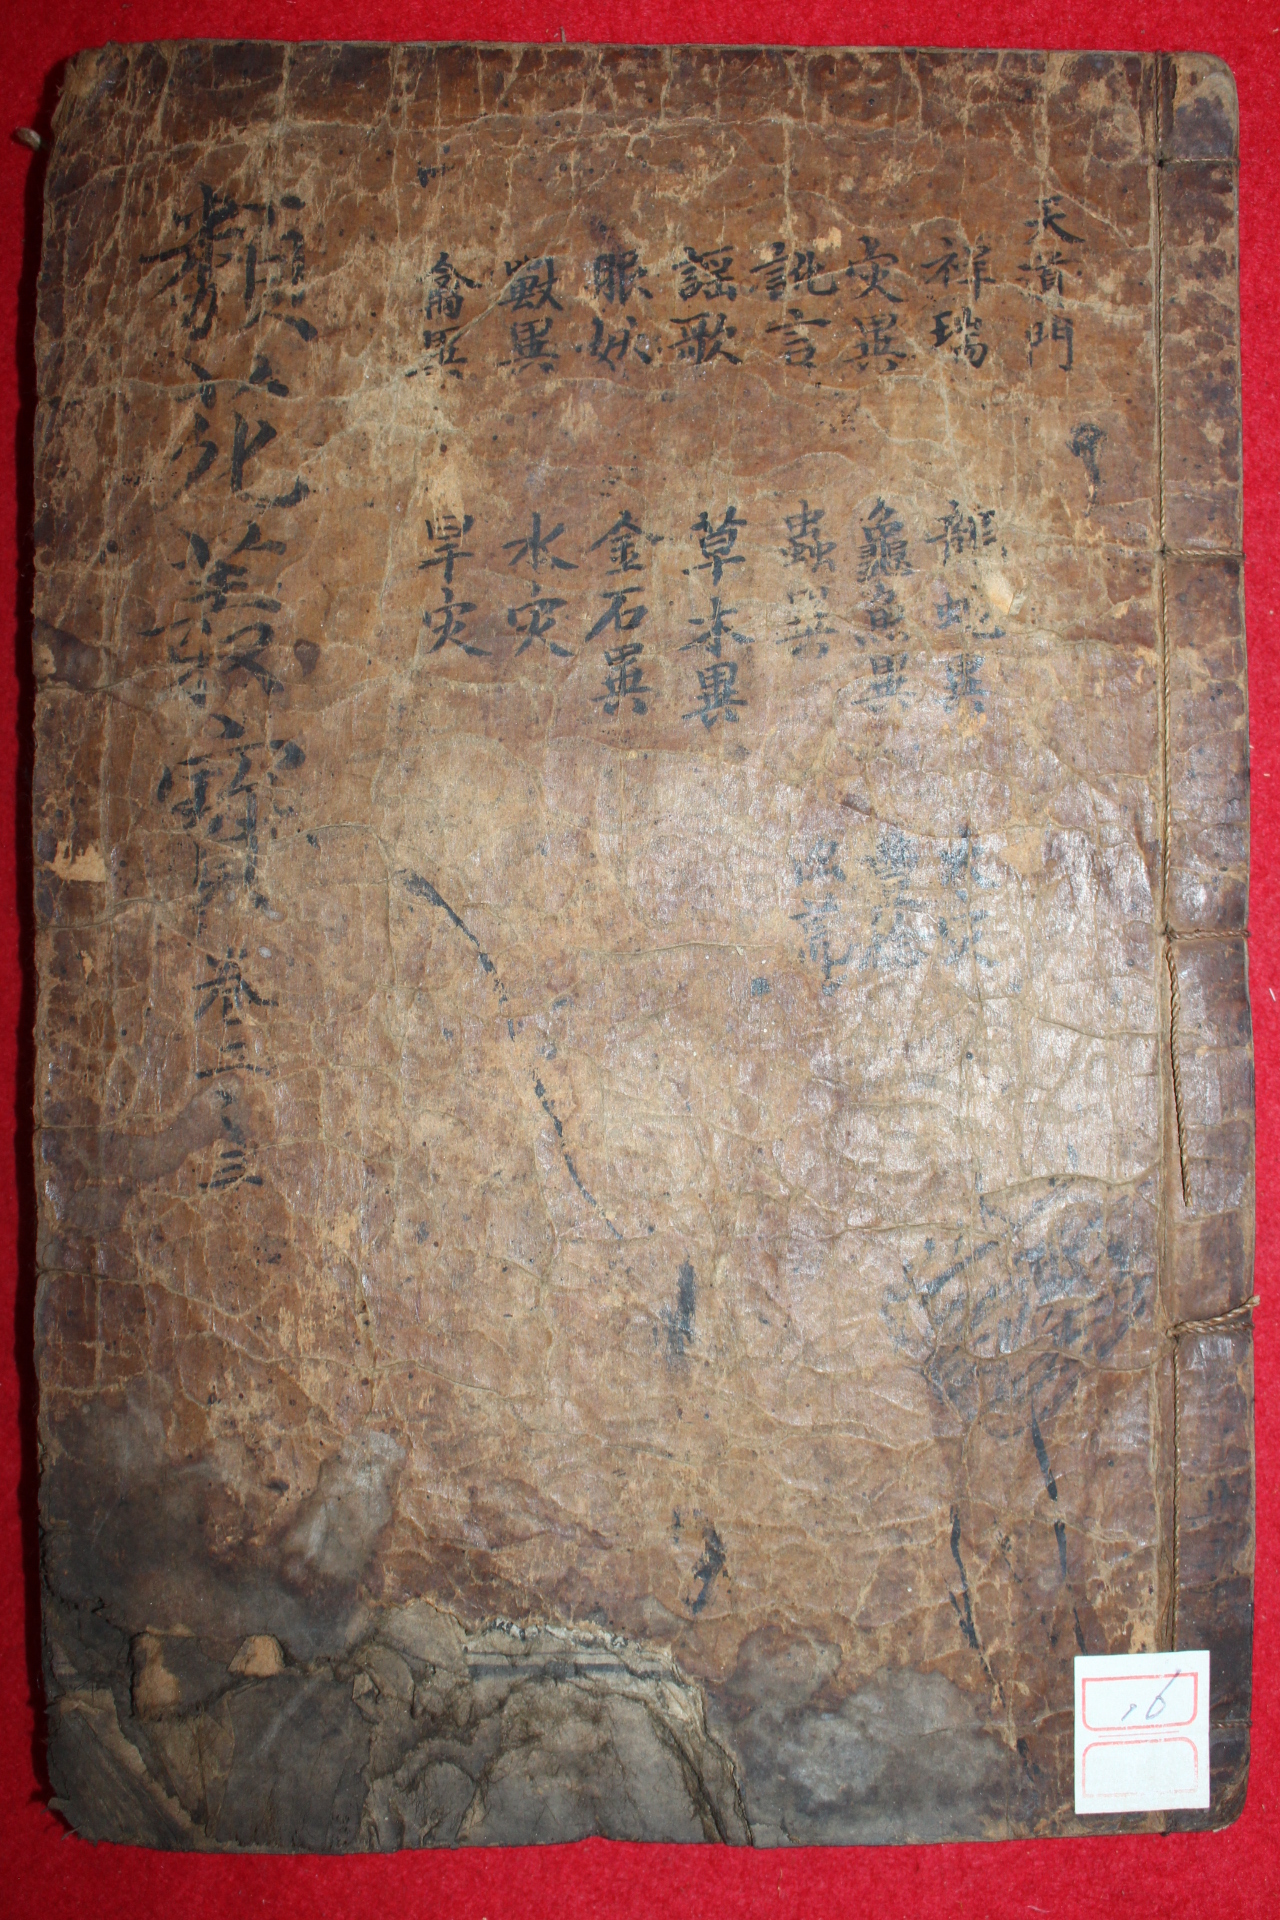 天道門
祥瑞
災異
訛言
謠歌
服妖
獸異
禽異
龍蛇異
龜魚異
蟲異
草木異
金石異
水灾
旱灾
火灾
類苑叢寶 卷二之三